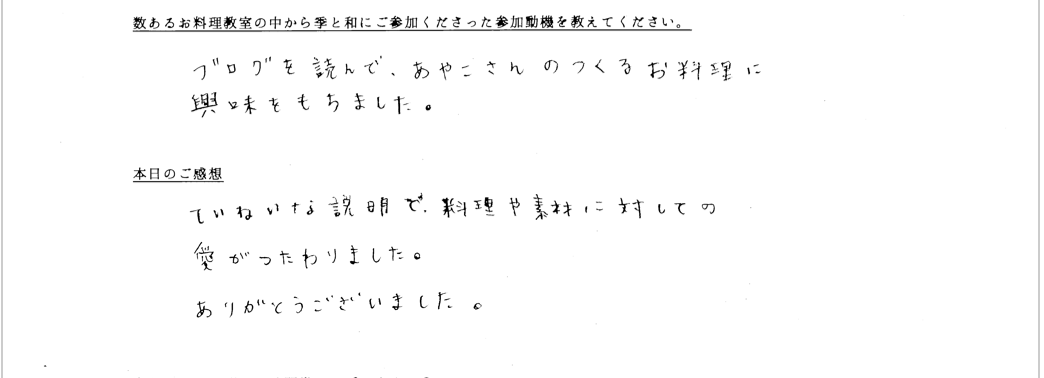 数あるお料理教室の中から季と和にご参加くださった参加動機を教えてください。
ブログを読んで、あやこさんのつくるお料理に
興味をもちました。
本日のご感想
ていねいな説明で、料理や素材に対しての
愛がつたわりました。
ありがとうございました。